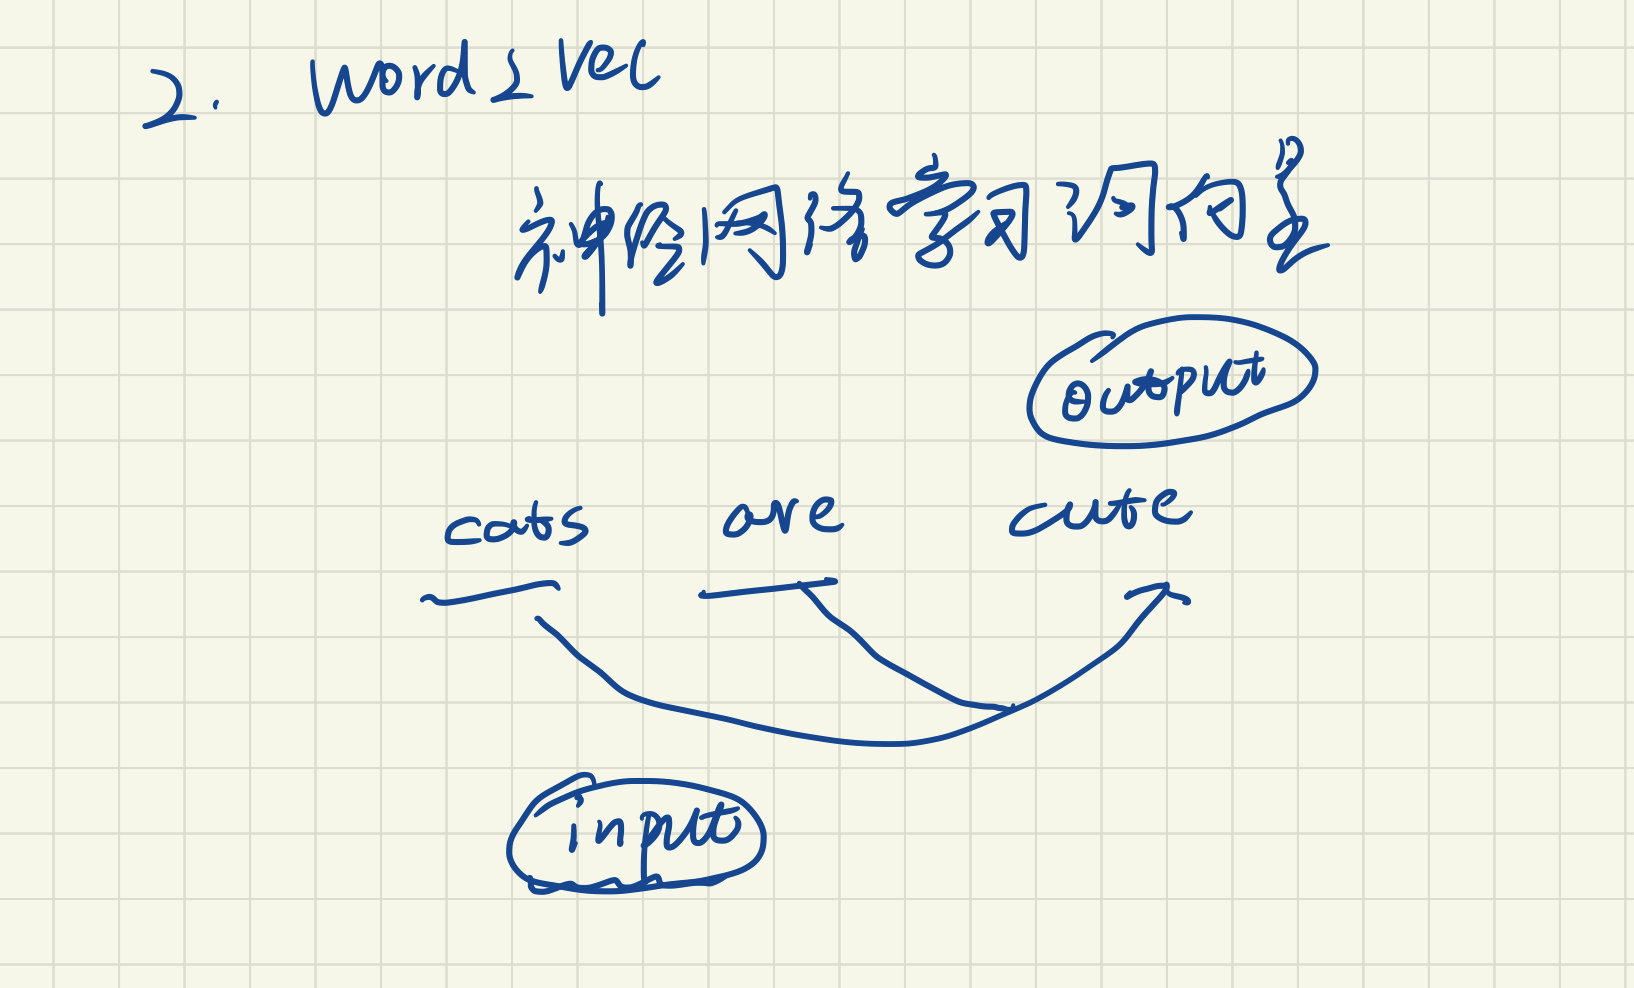 2. Word2Vec
神经网络学习词向量
output
cats are cute
input